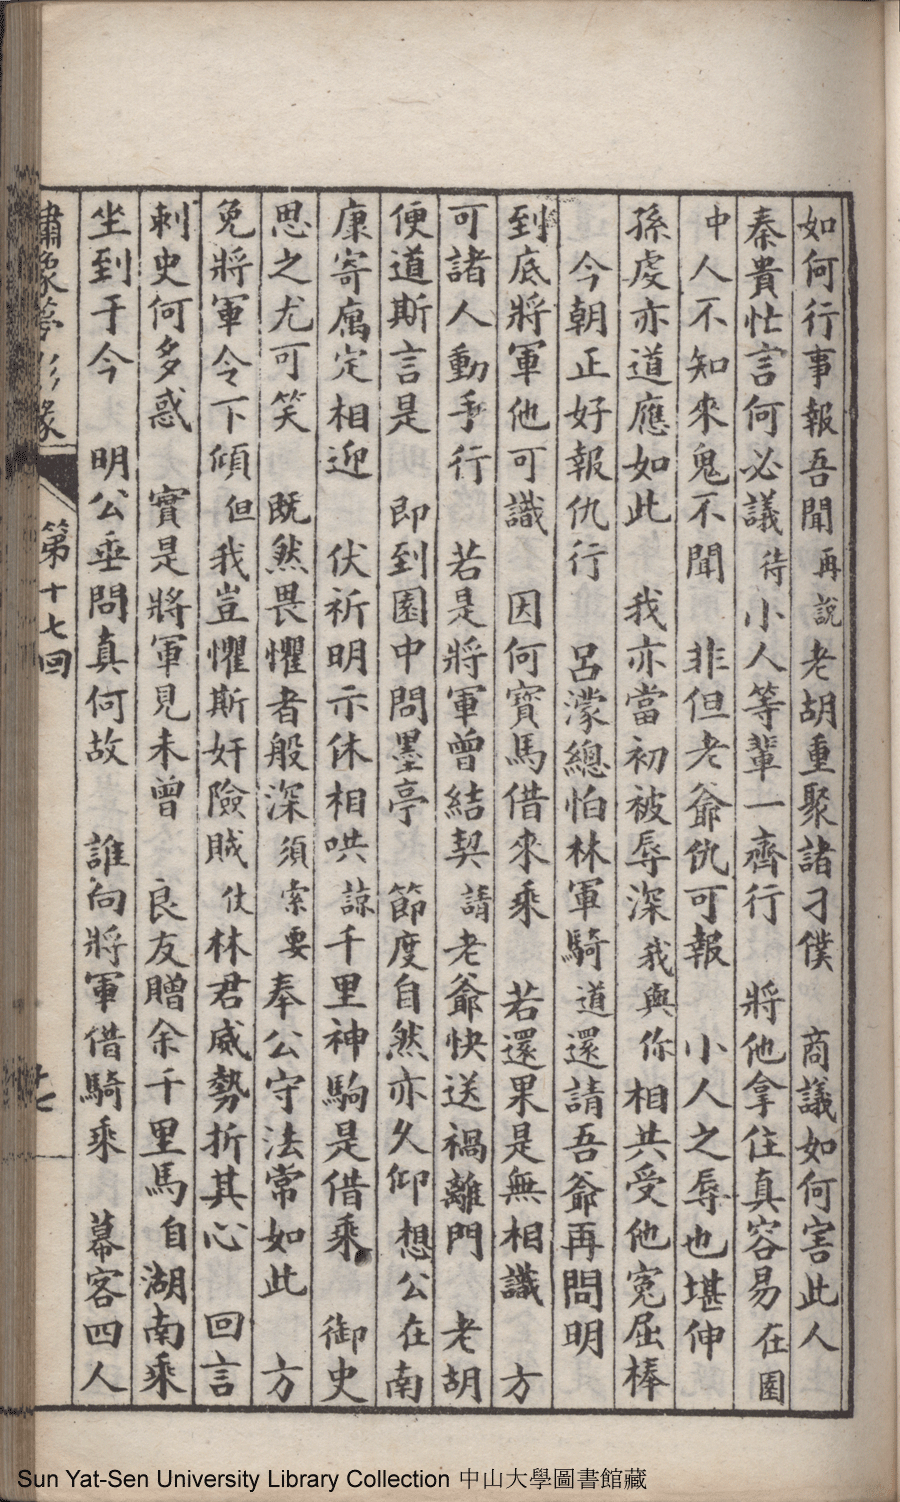 如何行事報吾聞　再說老胡重聚諸刁僕　商議如何害此人
秦貴忙言何必議　待小人等輩一齊行　將他拿住真容易　在園
中人不知來鬼不聞　非但老爺仇可報　小人之辱也堪伸
孫虔亦道應如此　我亦當初被辱深　我與你相共受他寃屈棒
今朝正好報仇行　呂濛總怕林軍騎　道還請吾爺再問明
到底將軍他可識　因何寶馬借來乘　若還果是無相識　方
可諸人動手行　若是將軍曾結契　請老爺快送禍離門　老胡
便道斯言是　即到園中問墨亭　節度自然亦久仰　想公在南
康寄寓定相迎　伏祈明示休相哄　諒千里神駒是借乘　御史
思之尤可笑　既然畏懼者般深　須索要奉公守法常如此　方
免將軍令下傾　但我豈懼斯奸險賊　仗林君威勢折其心　回言
刺史何多惑　實是將軍見未曾　良友贈余千里馬　自湖南乘
坐到于今　明公垂問真何故　誰向將軍借騎乘　幕客四人
繡像夢影緣　第十七回　十七
Sun Yat-Sen University Library Collection 中山大學圖書館藏